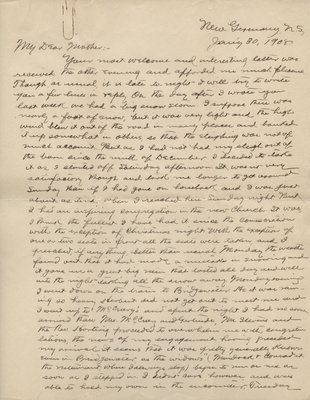 New Germany N.S.,
Jany 30, 1908
My Dear Mother:-
Your most welcome and interesting letter was
received the other evening and afforded me much pleasure
Though as usual it is late to-night I will try to write
you a few lines in reply. On the day after I wrote you
last week we had a big snow storm. I suppose there was
nearly a foot of snow, but it was very light and the high
wind blew it out of the road in many places and banked
it up somewhat in others so that the sleighing was not of
much account. But as I had not had my sleigh out of
the barn since the month of December, I decided to take
it as I started off Saturday afternoon. It was very
satisfactory though and took me longer to get around
Sunday than if I had gone on horseback and I was just
about as tired when I reached here Sunday night. But
I had an inspiring congregation in the new Church. It was
I think the fullest I have had it since the Consecration
with the exception of Christmas night. With the exception of
one or two seats in front all the seats were taken and I
preached if anything better than usual. Monday the weather
found out that it had made a mistake in snowing and
it gave us a great big rain that lasted all day and well
into the night taking all the snow away. Monday evening
I went down on the train to Bridgewater. As it was raining
so heavy Herbert did not get out to meet me and
I went up to McCurdy's and spent the night. I had no sooner
than Mrs. McCurdy and
the Rev proceeded to overwhelm me with congratulations,
the news of my engagement having preceded
my arrival. It seems that it was pretty generally known
even in Bridgewater as the widows
(the restaurant where I always stop) began to me as
soon as I stepped in. I didn't deny however and was
able to hold my own in the encounter. Tuesday